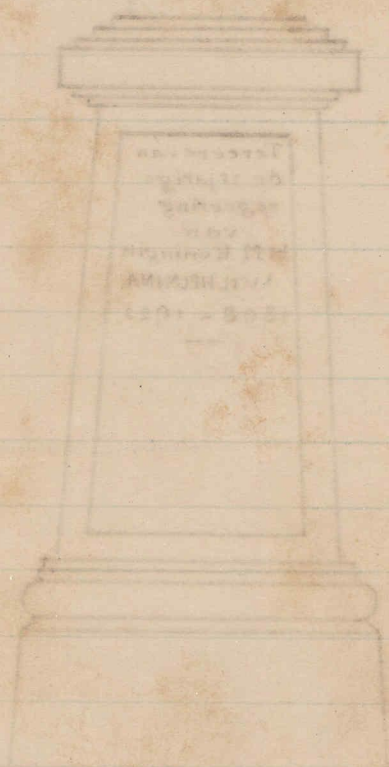 Ter eere van
de 25 jarige
regeering
van
H M Koningin
WILHELMINA
1898 - 1923